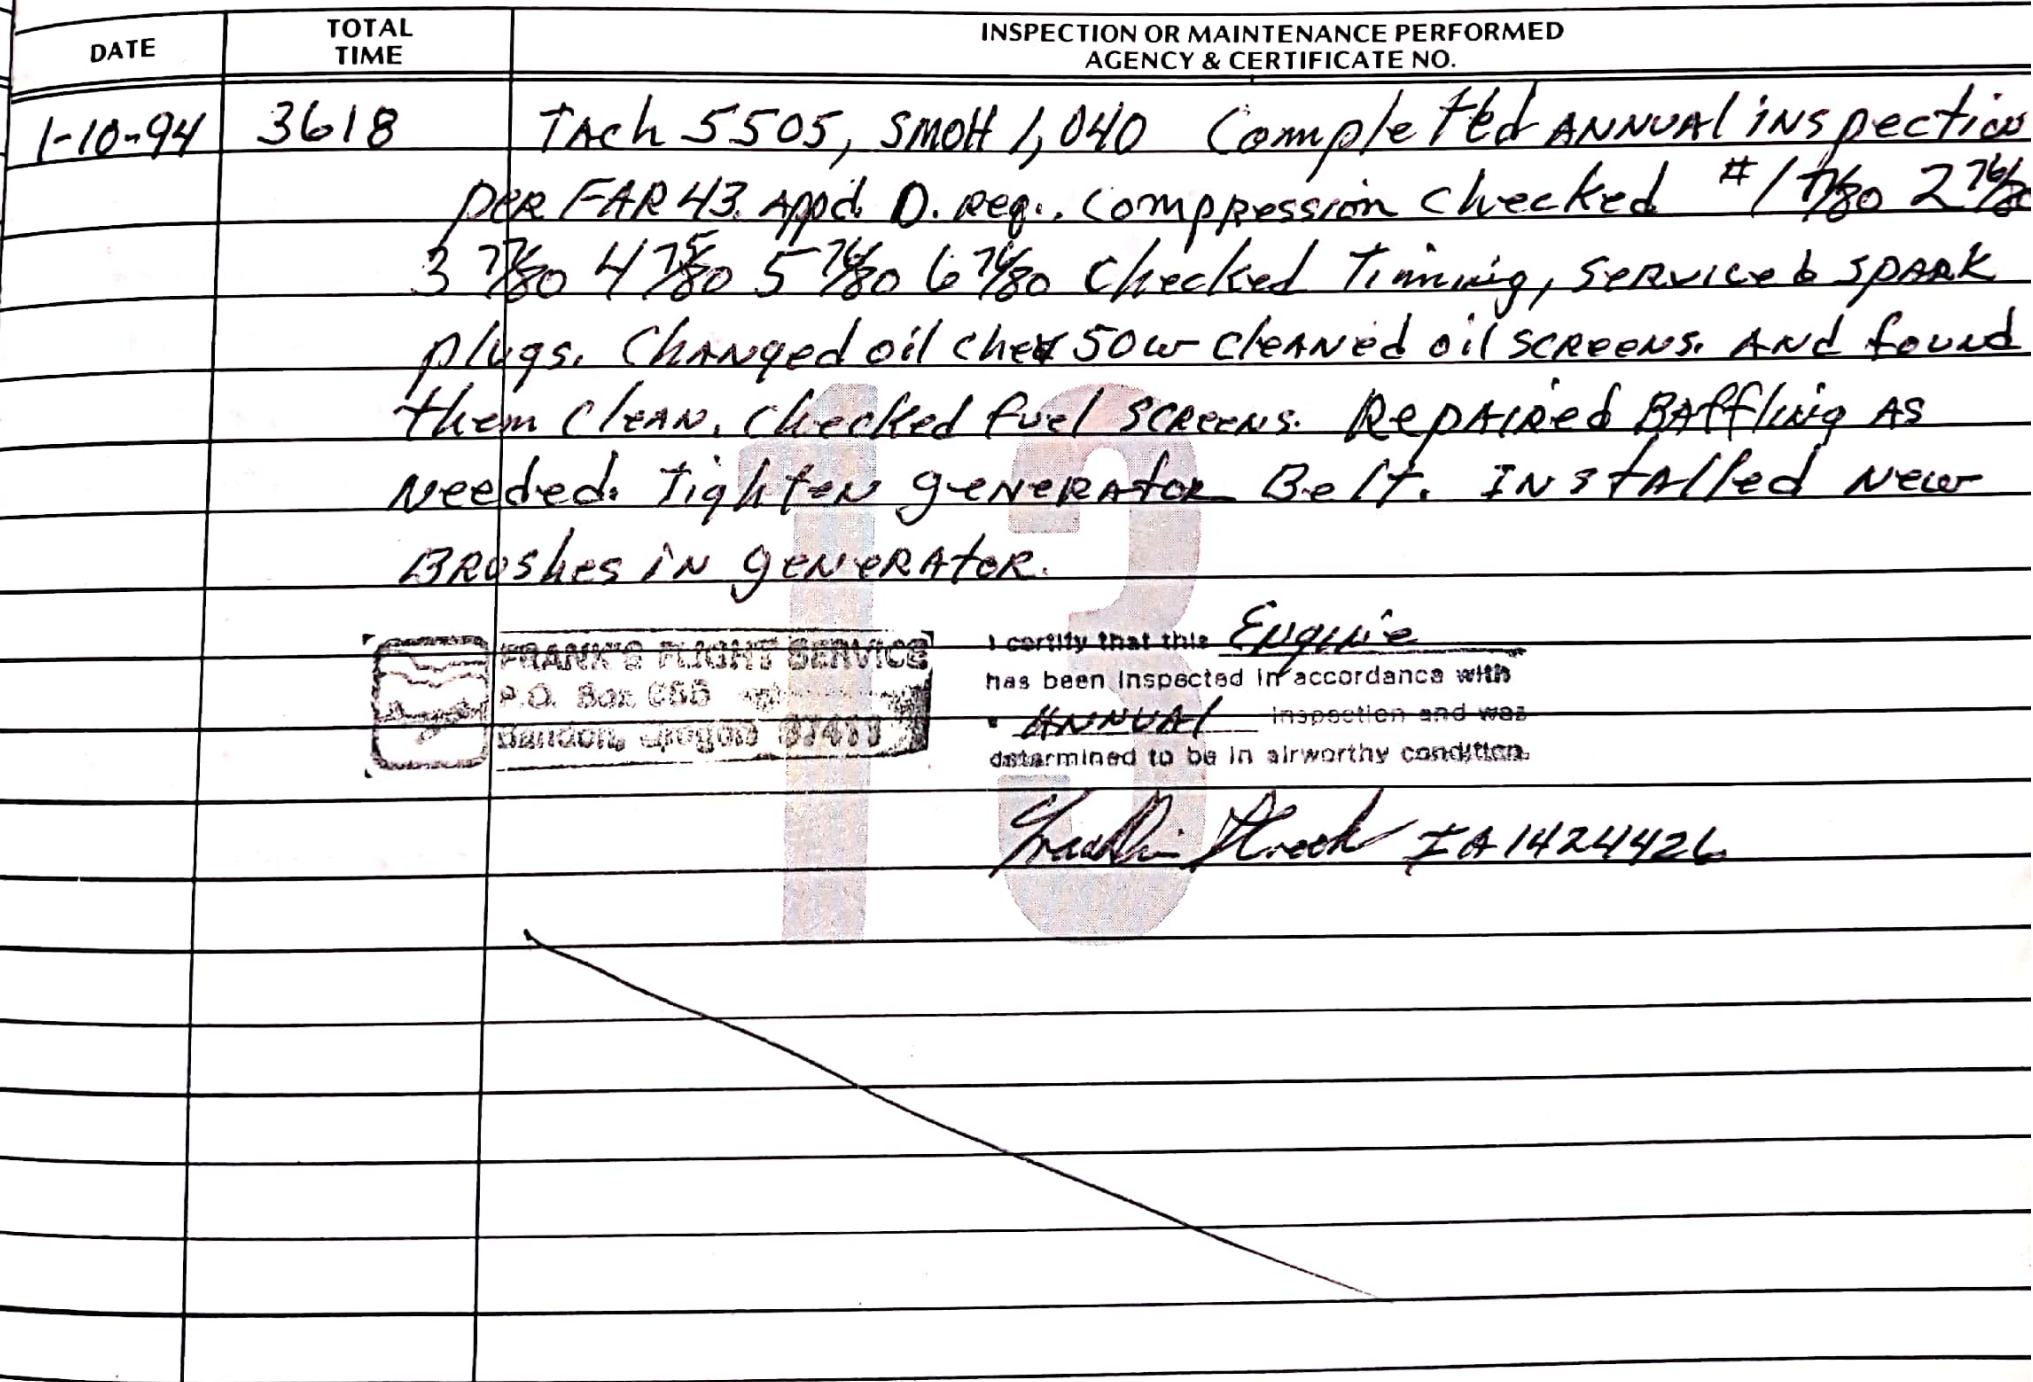 DATE
TOTAL TIME
INSPECTION OR MAINTENANCE PERFORMED
AGENCY & CERTIFICATE NO.
1-10-94 3618 TAch 5505, SMOH 1,040 Completed ANNUAl iNSpection
per FAR 43. Appd. D. Req.. Compression checked #1 77/80 2 76/80
3 77/80 4 75/80 5 76/80 6 76/80 Checked Timming, service & SPARK
plugs. Changed oil 50w cleaned oil screens. And found
them clean. Checked fuel screens. Repaired Baffling AS
Needed. Tighten generator Belt. INstAlled New
Brushes iN geNeRAtoR.
13
FRANK'S FLIGHT SERVICE
P.O. Box
Bandon, Oregon 97411
I certify that this Engine
has been inspected in accordance with
ANNUAl inspection and was
determined to be in airworthy condition.
IA 1424426